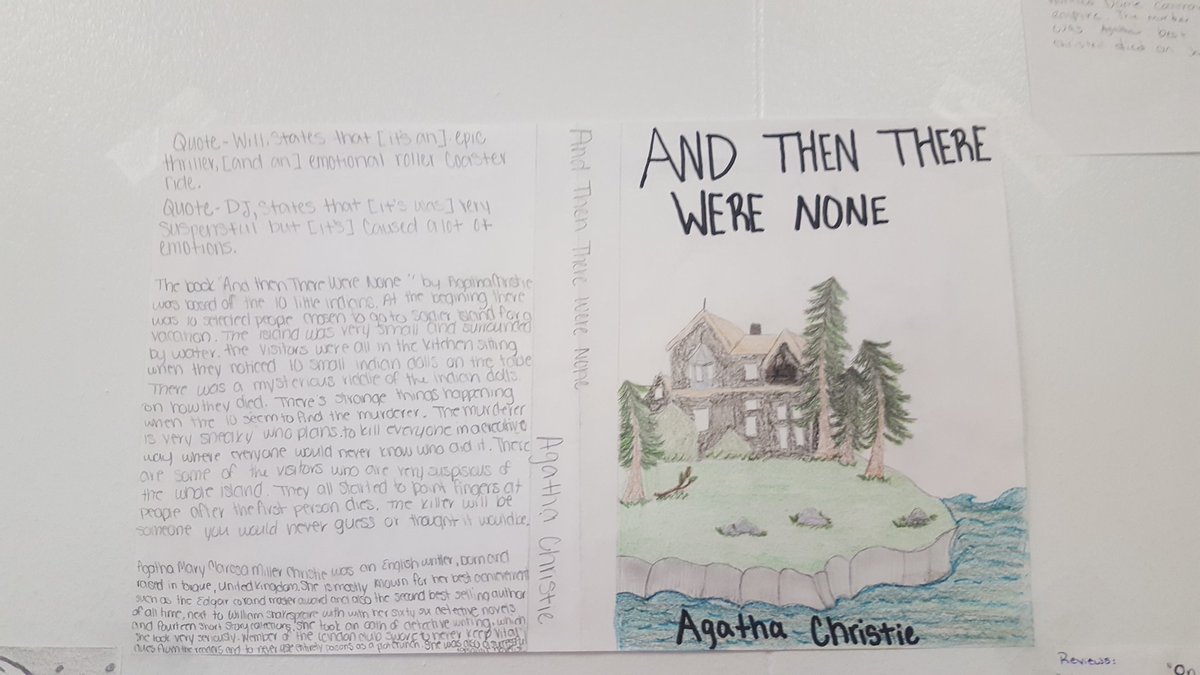 Quote - Will, states that [it's an] epic
thriller, [and an] emotional roller coaster
ride.
Quote - DJ, states that [it's was] very
suspensful but [it's] caused a lot of
emotions.
The book "And then There Were None" by Agatha Christie
was based of the 10 little indians. At the begining there
was 10 selected people chosen to go to soider island for a
vacation. The island was very small and surrounded
by water. the visitors were all in the kitchen sitting
when they noticed 10 small indian dolls on the table
There was a mysterious riddle of the indian dolls
on how they died. There's strange things happening
when the 10 seem to find the murderer. The murderer
is very sneaky who plans to kill everyone in a creative
way where everyone would never know who did it. There
are some of the visitors who are very suspisious of
the whole island. They all started to point fingers at
people after the first person dies. The killer will be
someone you would never guess or thought it would be.
Agatha Mary Clarissa Miller Christie was an English writer, born and
raised in torque, United Kingdom. She is mostly known for her best
such as the Edgar award and also the second best selling author
of all time, next to William Shakespeare with with her sixty six detective novels
and fourteen short story collections. She took an oath of detective writing, which
she took very seriously. Member of the London club swore to never keep vital
clues from the readers and to never use entirely as a She was also a
And Then There Were None
Agatha Christie
AND THEN THERE
WERE NONE
Agatha Christie
was Agatha best
died on
Reviews:
"On